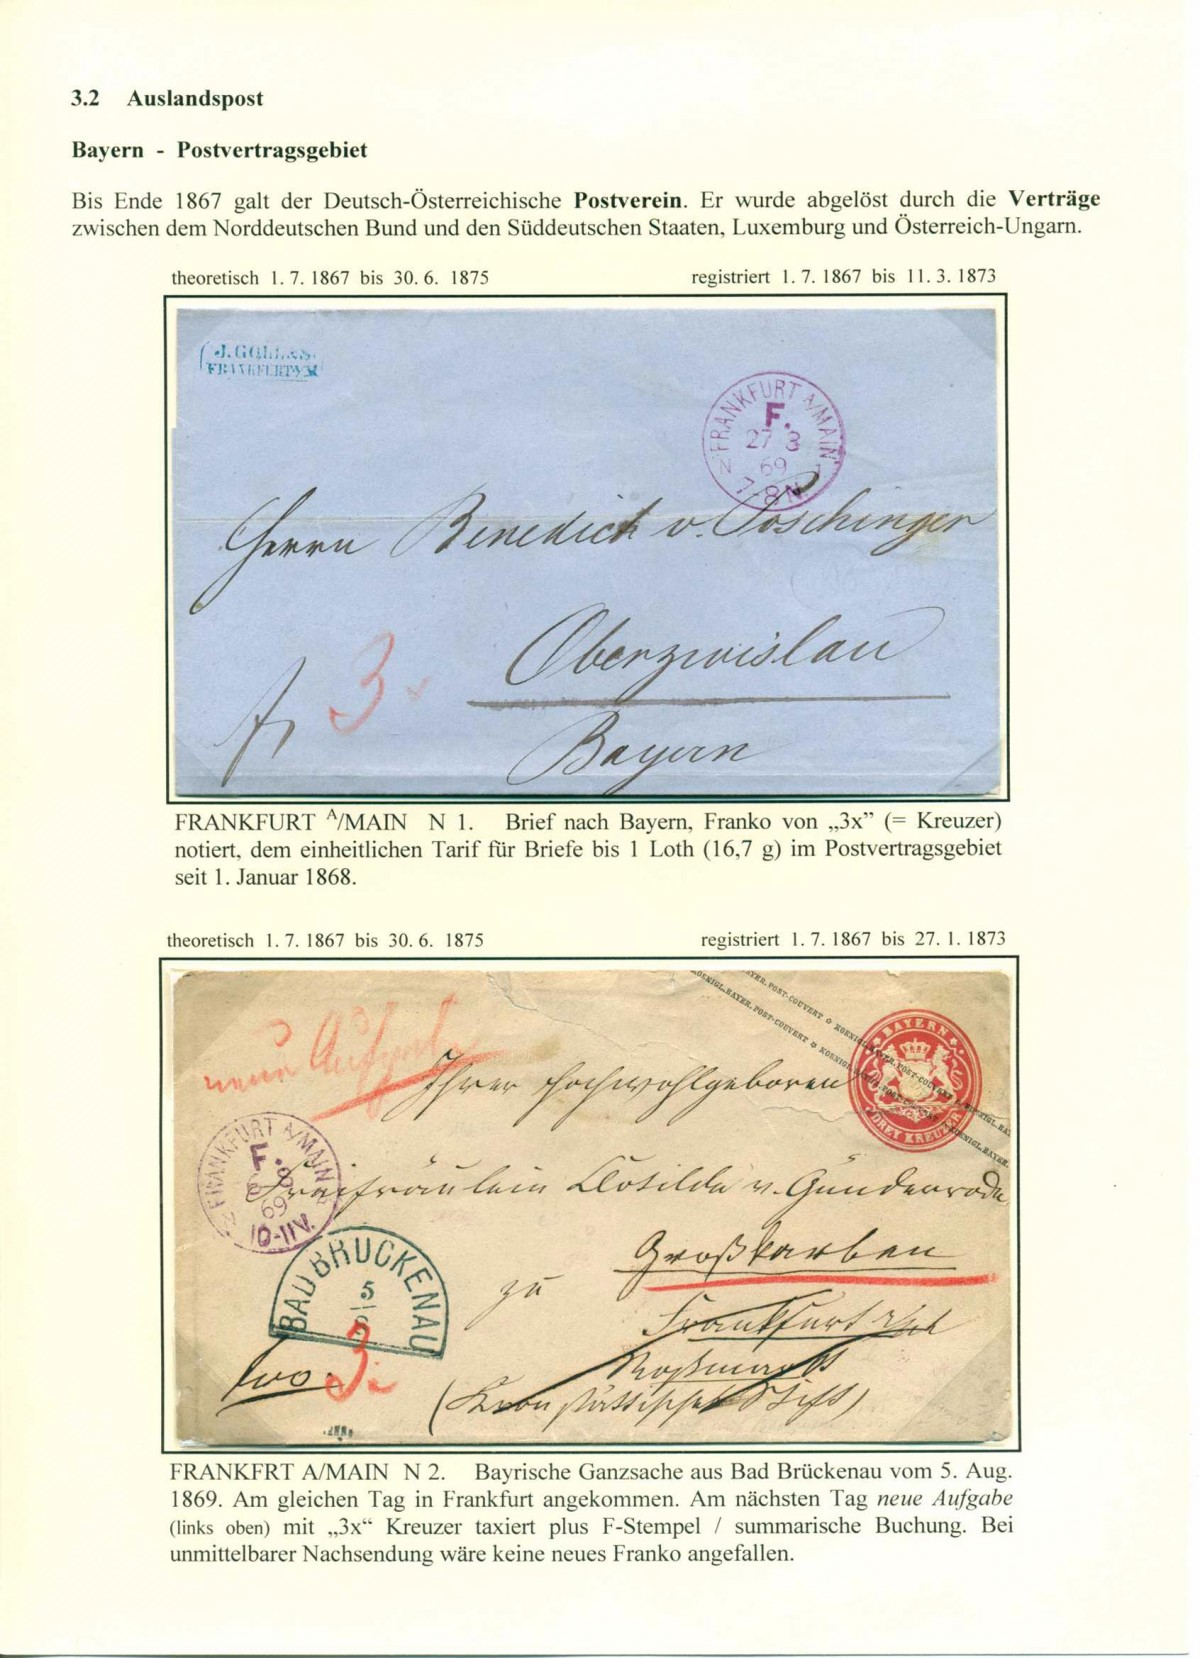 3.2 Auslandspost
Bayern - Postvertragsgebiet
Bis Ende 1867 galt der Deutsch-Österreichische Postverein. Er wurde abgelöst durch die Verträge
zwischen dem Norddeutschen Bund und den Süddeutschen Staaten, Luxemburg und Österreich-Ungarn.
theoretisch 1. 7. 1867 bis 30. 6. 1875 registriert 1. 7. 1867 bis 11. 3. 1873
FRANKFURT A/MAIN
F.
27 3
69
7-8 N.
N 1
Herrn Benedict v. Poschinger
Oberzwislau
3
Bayern
FRANKFURT A/MAIN N 1. Brief nach Bayern, Franko von „3x” (= Kreuzer)
notiert, dem einheitlichen Tarif für Briefe bis 1 Loth (16,7 g) im Postvertragsgebiet
seit 1. Januar 1868.
theoretisch 1. 7. 1867 bis 30. 6. 1875 registriert 1. 7. 1867 bis 27. 1. 1873
KOENIGL.BAYER.POST-COUVERT
BAYERN
DREY KREUZER
neue Aufgabe
Ihrer Hochwohlgeboren
FRANKFURT A/MAIN
F.
69
10-11V.
Freifräulein Clotilde v. Günderrode
zu Großkarben
BAD BRÜCKENAU
5
3
Frankfurt
Roßmarkt
FRANKFRT A/MAIN N 2. Bayrische Ganzsache aus Bad Brückenau vom 5. Aug.
1869. Am gleichen Tag in Frankfurt angekommen. Am nächsten Tag neue Aufgabe
(links oben) mit „3x“ Kreuzer taxiert plus F-Stempel / summarische Buchung. Bei
unmittelbarer Nachsendung wäre keine neues Franko angefallen.